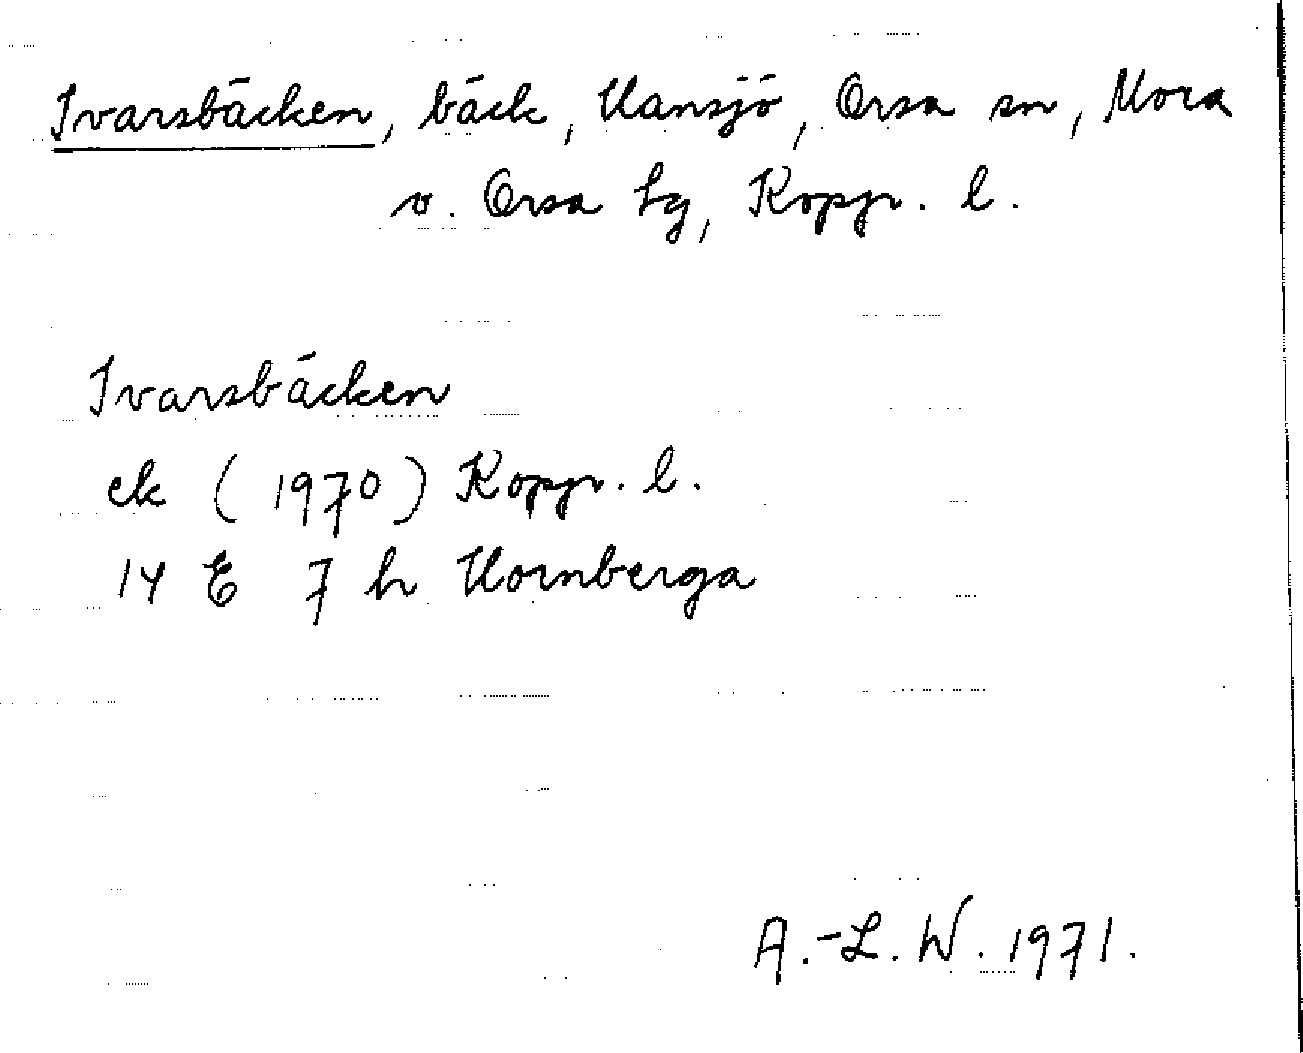 Ivarsbäcken, bäck, Hansjö, Orsa sn, Mora
o. Orsa tg, Koppr. l.
Ivarsbäcken
ek (1970) Koppr. l.
14 E 7 h Hornberga
A.-L. W. 1971.